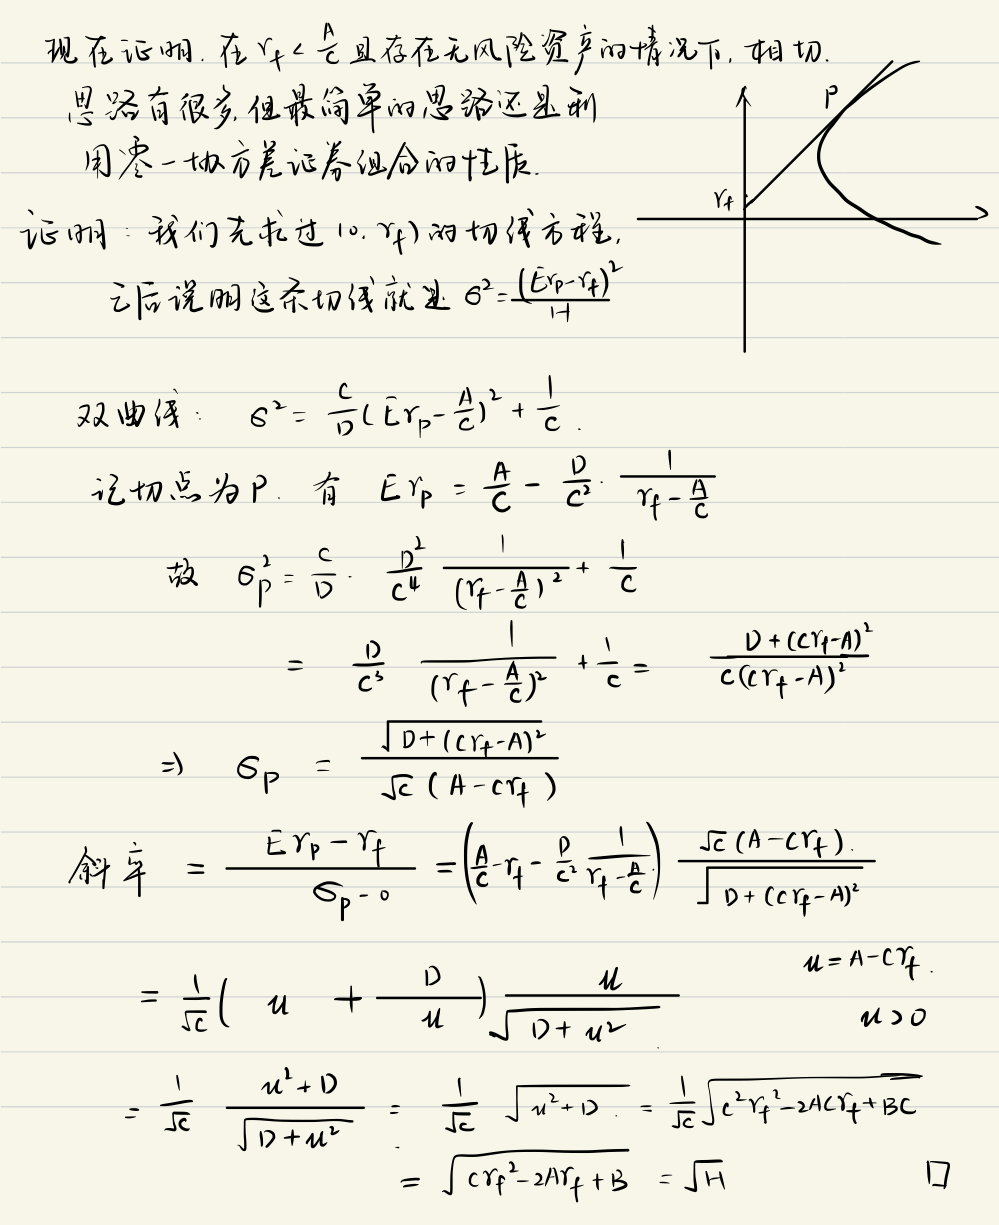 现在证明.在 r_f < A/C 且存在无风险资产的情况下,相切.
思路有很多,但最简单的思路还是利
用零一协方差证券组合的性质.
P
r_f
证明:我们先求过(0, r_f)的切线方程,
之后说明这条切线就是 σ² = (Er_p - r_f)²/H
双曲线: σ² = C/D (Er_p - A/C)² + 1/C.
记切点为P. 有 Er_p = A/C - D/C² · 1/(r_f - A/C)
故 σ_p² = C/D · D²/C⁴ 1/(r_f - A/C)² + 1/C
= D/C³ 1/(r_f - A/C)² + 1/C = (D + (Cr_f - A)²)/(C(Cr_f - A)²)
⇒ σ_p = √(D + (Cr_f - A)²)/(√C (A - Cr_f))
斜率 = (Er_p - r_f)/(σ_p - 0) = (A/C - r_f - D/C² 1/(r_f - A/C)) √C (A - Cr_f)./√(D + (Cr_f - A)²)
u = A - Cr_f.
= 1/√C (u + D/u) u/√(D + u²)
u > 0
= 1/√C (u² + D)/√(D + u²) = 1/√C √(u² + D) = 1/√C √(C²r_f² - 2ACr_f + BC)
= √(Cr_f² - 2Ar_f + B) = √H □